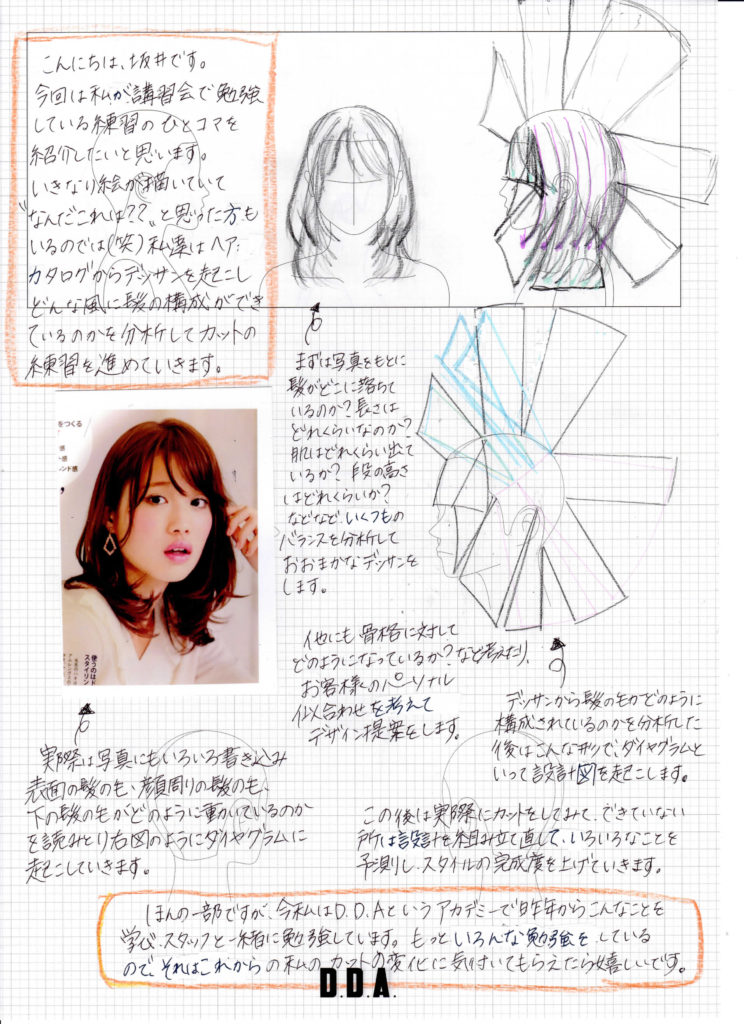 こんにちは、坂井です。
今回は私が講習会で勉強
している練習のひとコマを
紹介したいと思います。
いきなり絵が描いていて
"なんだこれは??"と思った方も
いるのでは(笑)私達はヘア:
カタログからデッサンを起こし
どんな風に髪の構成ができ
ているのかを分析してカットの
練習を進めていきます。
まずは写真をもとに
髪がどこに落ちて
いるのか?長さは
どれくらいなのか?
肌はどれくらい出て
いるか?段の高さ
はどれくらいか?
などなどいくつもの
バランスを分析して
おおまかなデッサンを
します。
をつくる
感
ト感
レンド感
使うのはド
スタイリン
他にも骨格に対して
どのようになっているか?など考えたり、
お客様のパーソナル
似合わせを考えて
デザイン提案をします。
デッサンから髪の毛がどのように
構成されているのかを分析した
後はこんな形で、ダイヤグラムと
いって設計図を起こします。
実際は写真にもいろいろ書き込み
表面の髪の毛、顔周りの髪の毛、
下の髪の毛がどのように動いているのか
を読みとり右図のようにダイヤグラムに
起こしていきます。
この後は実際にカットをしてみて、できていない
所は設計を組み立て直して、いろいろなことを
予測し、スタイルの完成度を上げていきます。
ほんの一部ですが、今私はD.D.Aというアカデミーで昨年からこんなことを
学び、スタッフと一緒に勉強しています。もっといろんな勉強をしている
ので、それはこれからの私のカットの変化に気付いてもらえたら嬉しいです。
D.D.A.